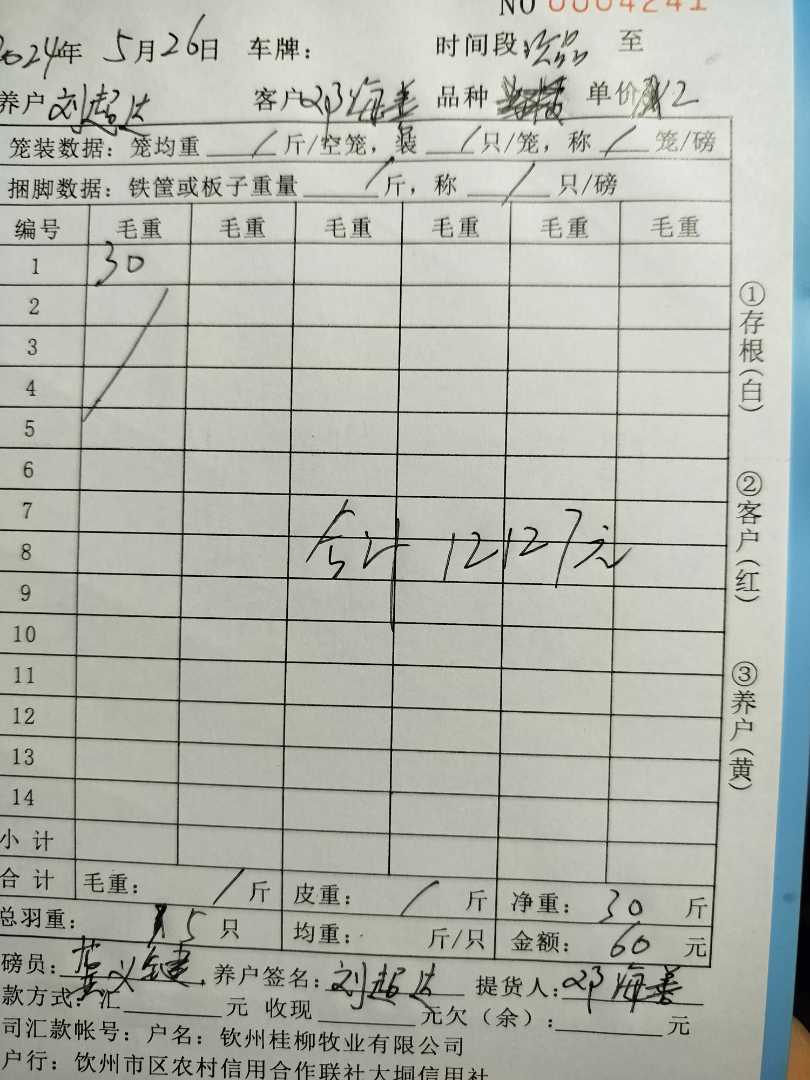 NO 0004241
2024年 5月26日 车牌： 时间段 次品 至
养户 刘超达 客户 邓海善 品种 单价 2
笼装数据：笼均重 / 斤/空笼，装 / 只/笼，称 / 笼/磅
捆脚数据：铁筐或板子重量 / 斤，称 / 只/磅
编号 毛重 毛重 毛重 毛重 毛重 毛重
1 30
2
3
4
5
6
7
合计 12127元
8
9
10
11
12
13
14
小 计
合 计 毛重： / 斤 皮重： / 斤 净重： 30 斤
总羽重： 15 只 均重： 斤/只 金额： 60 元
磅员： 养户签名：刘超达 提货人：邓海善
款方式：汇 元 收现 元欠（余）： 元
司汇款帐号：户名：钦州桂柳牧业有限公司
户行：钦州市区农村信用合作联社大垌信用社
①存根（白）
②客户（红）
③养户（黄）